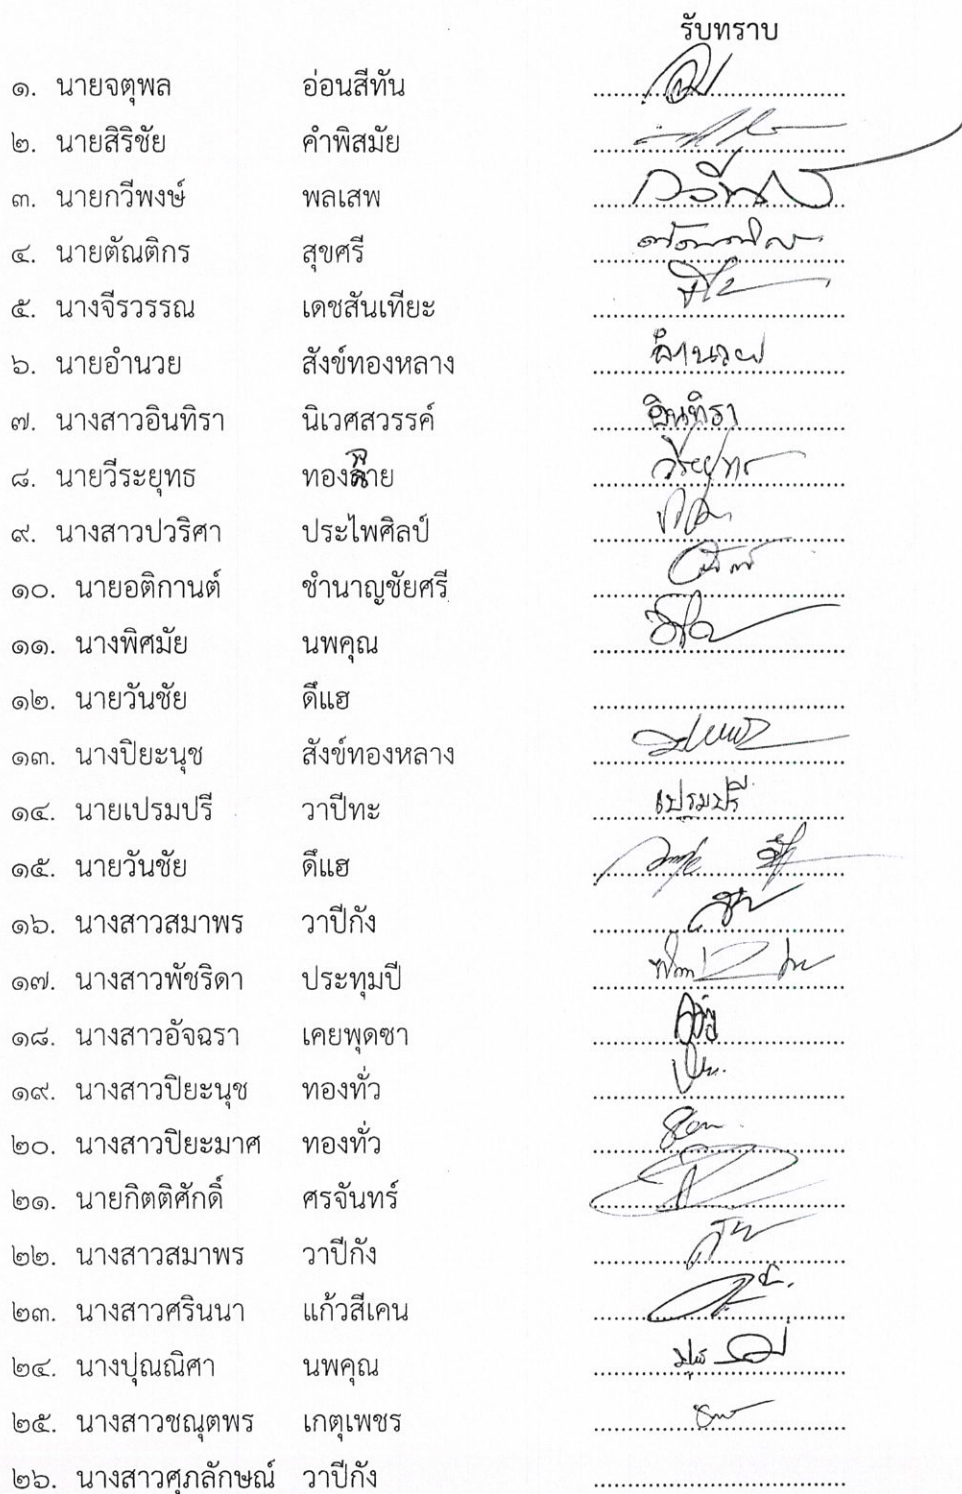 รับทราบ
๑. นายจตุพล อ่อนสีทัน
๒. นายสิริชัย คำพิสมัย
๓. นายกวีพงษ์ พลเสพ กวีพงษ์
๔. นายตัณติกร สุขศรี
๕. นางจีรวรรณ เดชสันเทียะ
๖. นายอำนวย สังข์ทองหลาง อำนวย
๗. นางสาวอินทิรา นิเวศสวรรค์ อินทิรา
๘. นายวีระยุทธ ทองลาย วีระยุทธ
๙. นางสาวปวริศา ประไพศิลป์
๑๐. นายอติกานต์ ชำนาญชัยศรี
๑๑. นางพิศมัย นพคุณ
๑๒. นายวันชัย ดีแฮ
๑๓. นางปิยะนุช สังข์ทองหลาง
๑๔. นายเปรมปรี วาปีทะ เปรมปรี
๑๕. นายวันชัย ดีแฮ
๑๖. นางสาวสมาพร วาปีกัง
๑๗. นางสาวพัชริดา ประทุมปี
๑๘. นางสาวอัจฉรา เคยพุดซา
๑๙. นางสาวปิยะนุช ทองทั่ว
๒๐. นางสาวปิยะมาศ ทองทั่ว
๒๑. นายกิตติศักดิ์ ศรจันทร์
๒๒. นางสาวสมาพร วาปีกัง
๒๓. นางสาวศรินนา แก้วสีเคน
๒๔. นางปุณณิศา นพคุณ
๒๕. นางสาวชณุตพร เกตุเพชร
๒๖. นางสาวศุภลักษณ์ วาปีกัง